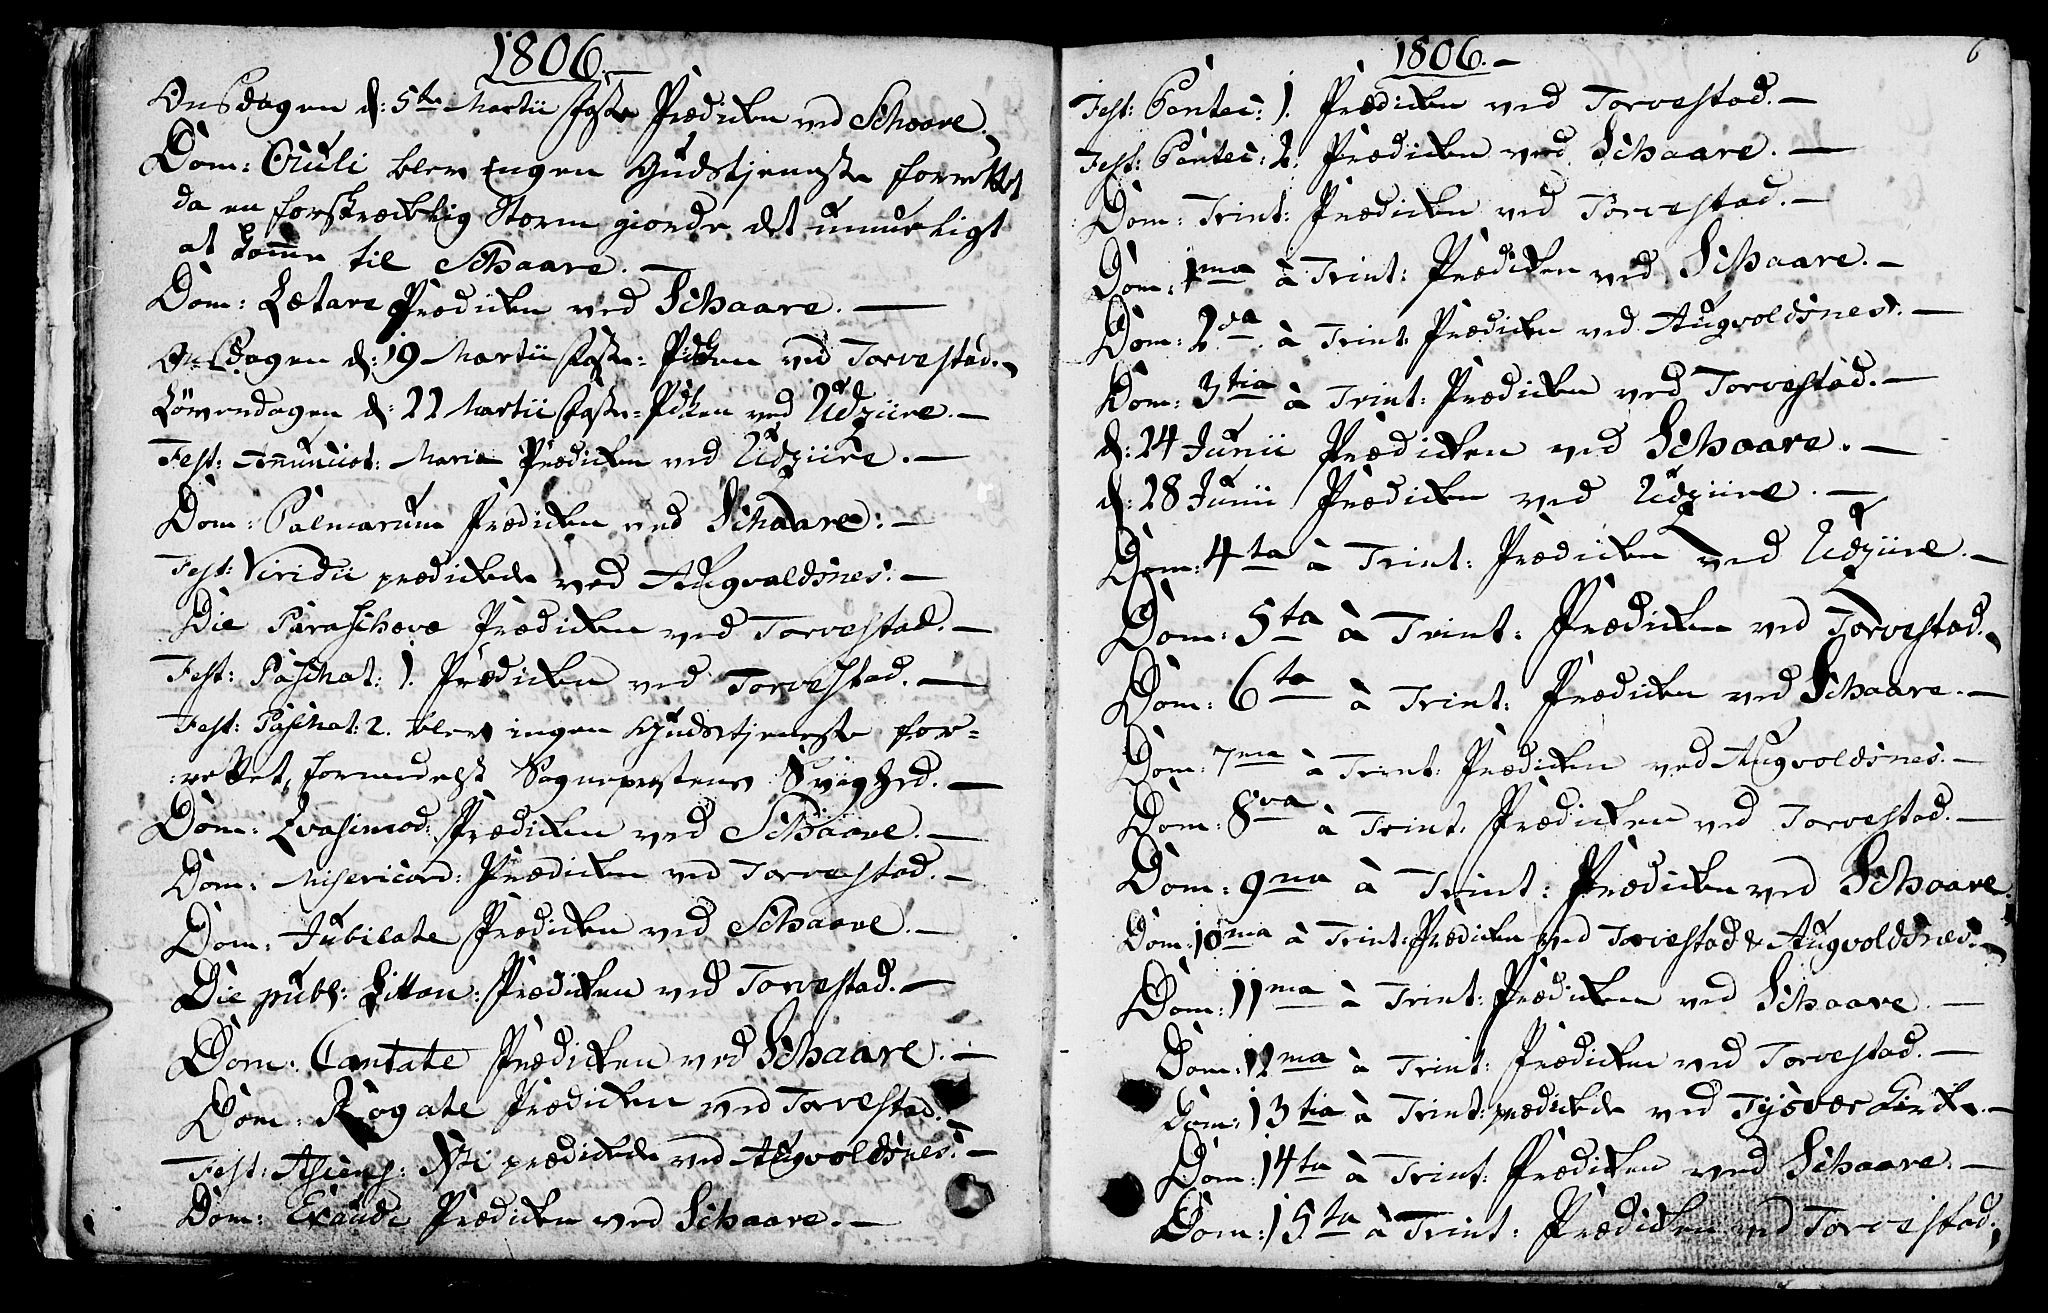 1806.
Onsdagen d: 5te Martii Faste Prædicken ved Schaare.
Dom: Oculi blev ingen Gudstjeneste forrettet
da en forskræcklig Storm giorde det umueligt
at komme til Schaare.
Dom: Lætare Prædicken ved Schaare.
Onsdagen d: 19 Martii Faste-Pdken ved Torvestad.
Löverdagen d: 22 Martii Faste-Pdken ved Udziire.
Fest: Annunciat: Mariæ Prædicken ved Udziire.
Dom: Palmarum Prædicken ved Schaare.
Fest: Viridii prædickede ved Augvaldsnes.
Die Parascheve Prædicken ved Torvestad.
Fest: Paschat: 1. Prædicken ved Torvestad.
Fest: Paschat: 2. blev ingen Gudstjeneste for-
rettet, formedelst Sognepræstens Svaghed.
Dom: Qvasimod: Prædicken ved Schaare.
Dom: Misericord: Prædicken ved Torvestad.
Dom: Jubilate Prædicken ved Schaare.
Die publ: Littan: Prædicken ved Torvestad.
Dom: Cantate Prædicken ved Schaare.
Dom: Rogate Prædicken ved Torvestad.
Fest: Ascens: Xsti prædickede ved Augvoldsnes.
Dom: Exaudi Prædicken ved Schaare.
1806.
6
Fest: Pentec: 1. Prædicken ved Torvestad.
Fest: Pentec: 2. Prædicken ved Schaare.
Dom: Trint: Prædicken ved Torvestad.
Dom: 1ma à Trint: Prædicken ved Schaare.
Dom: 2da à Trint: Prædicken ved Augvoldsnes.
Dom: 3tia à Trint: Prædicken ved Torvestad.
d: 24 Junii Prædicken ved Schaare.
d: 28 Junii Prædicken ved Udziire.
Dom: 4ta à Trint: Prædicken ved Udziire.
Dom: 5ta à Trint: Prædicken ved Torvestad.
Dom: 6ta à Trint: Prædicken ved Schaare.
Dom: 7ma à Trint: Prædicken ved Augvoldsnes.
Dom: 8va à Trint: Prædicken ved Torvestad.
Dom: 9na à Trint: Prædicken ved Schaare.
Dom: 10ma à Trint: Prædicken ved Torvestad & Augvoldsnes.
Dom: 11ma à Trint: Prædicken ved Schaare.
Dom: 12ma à Trint: Prædicken ved Torvestad.
Dom: 13tia à Trint: prædickede ved Tysvær Kirke.
Dom: 14ta à Trint: Prædicken ved Schaare.
Dom: 15ta à Trint: Prædicken ved Torvestad.